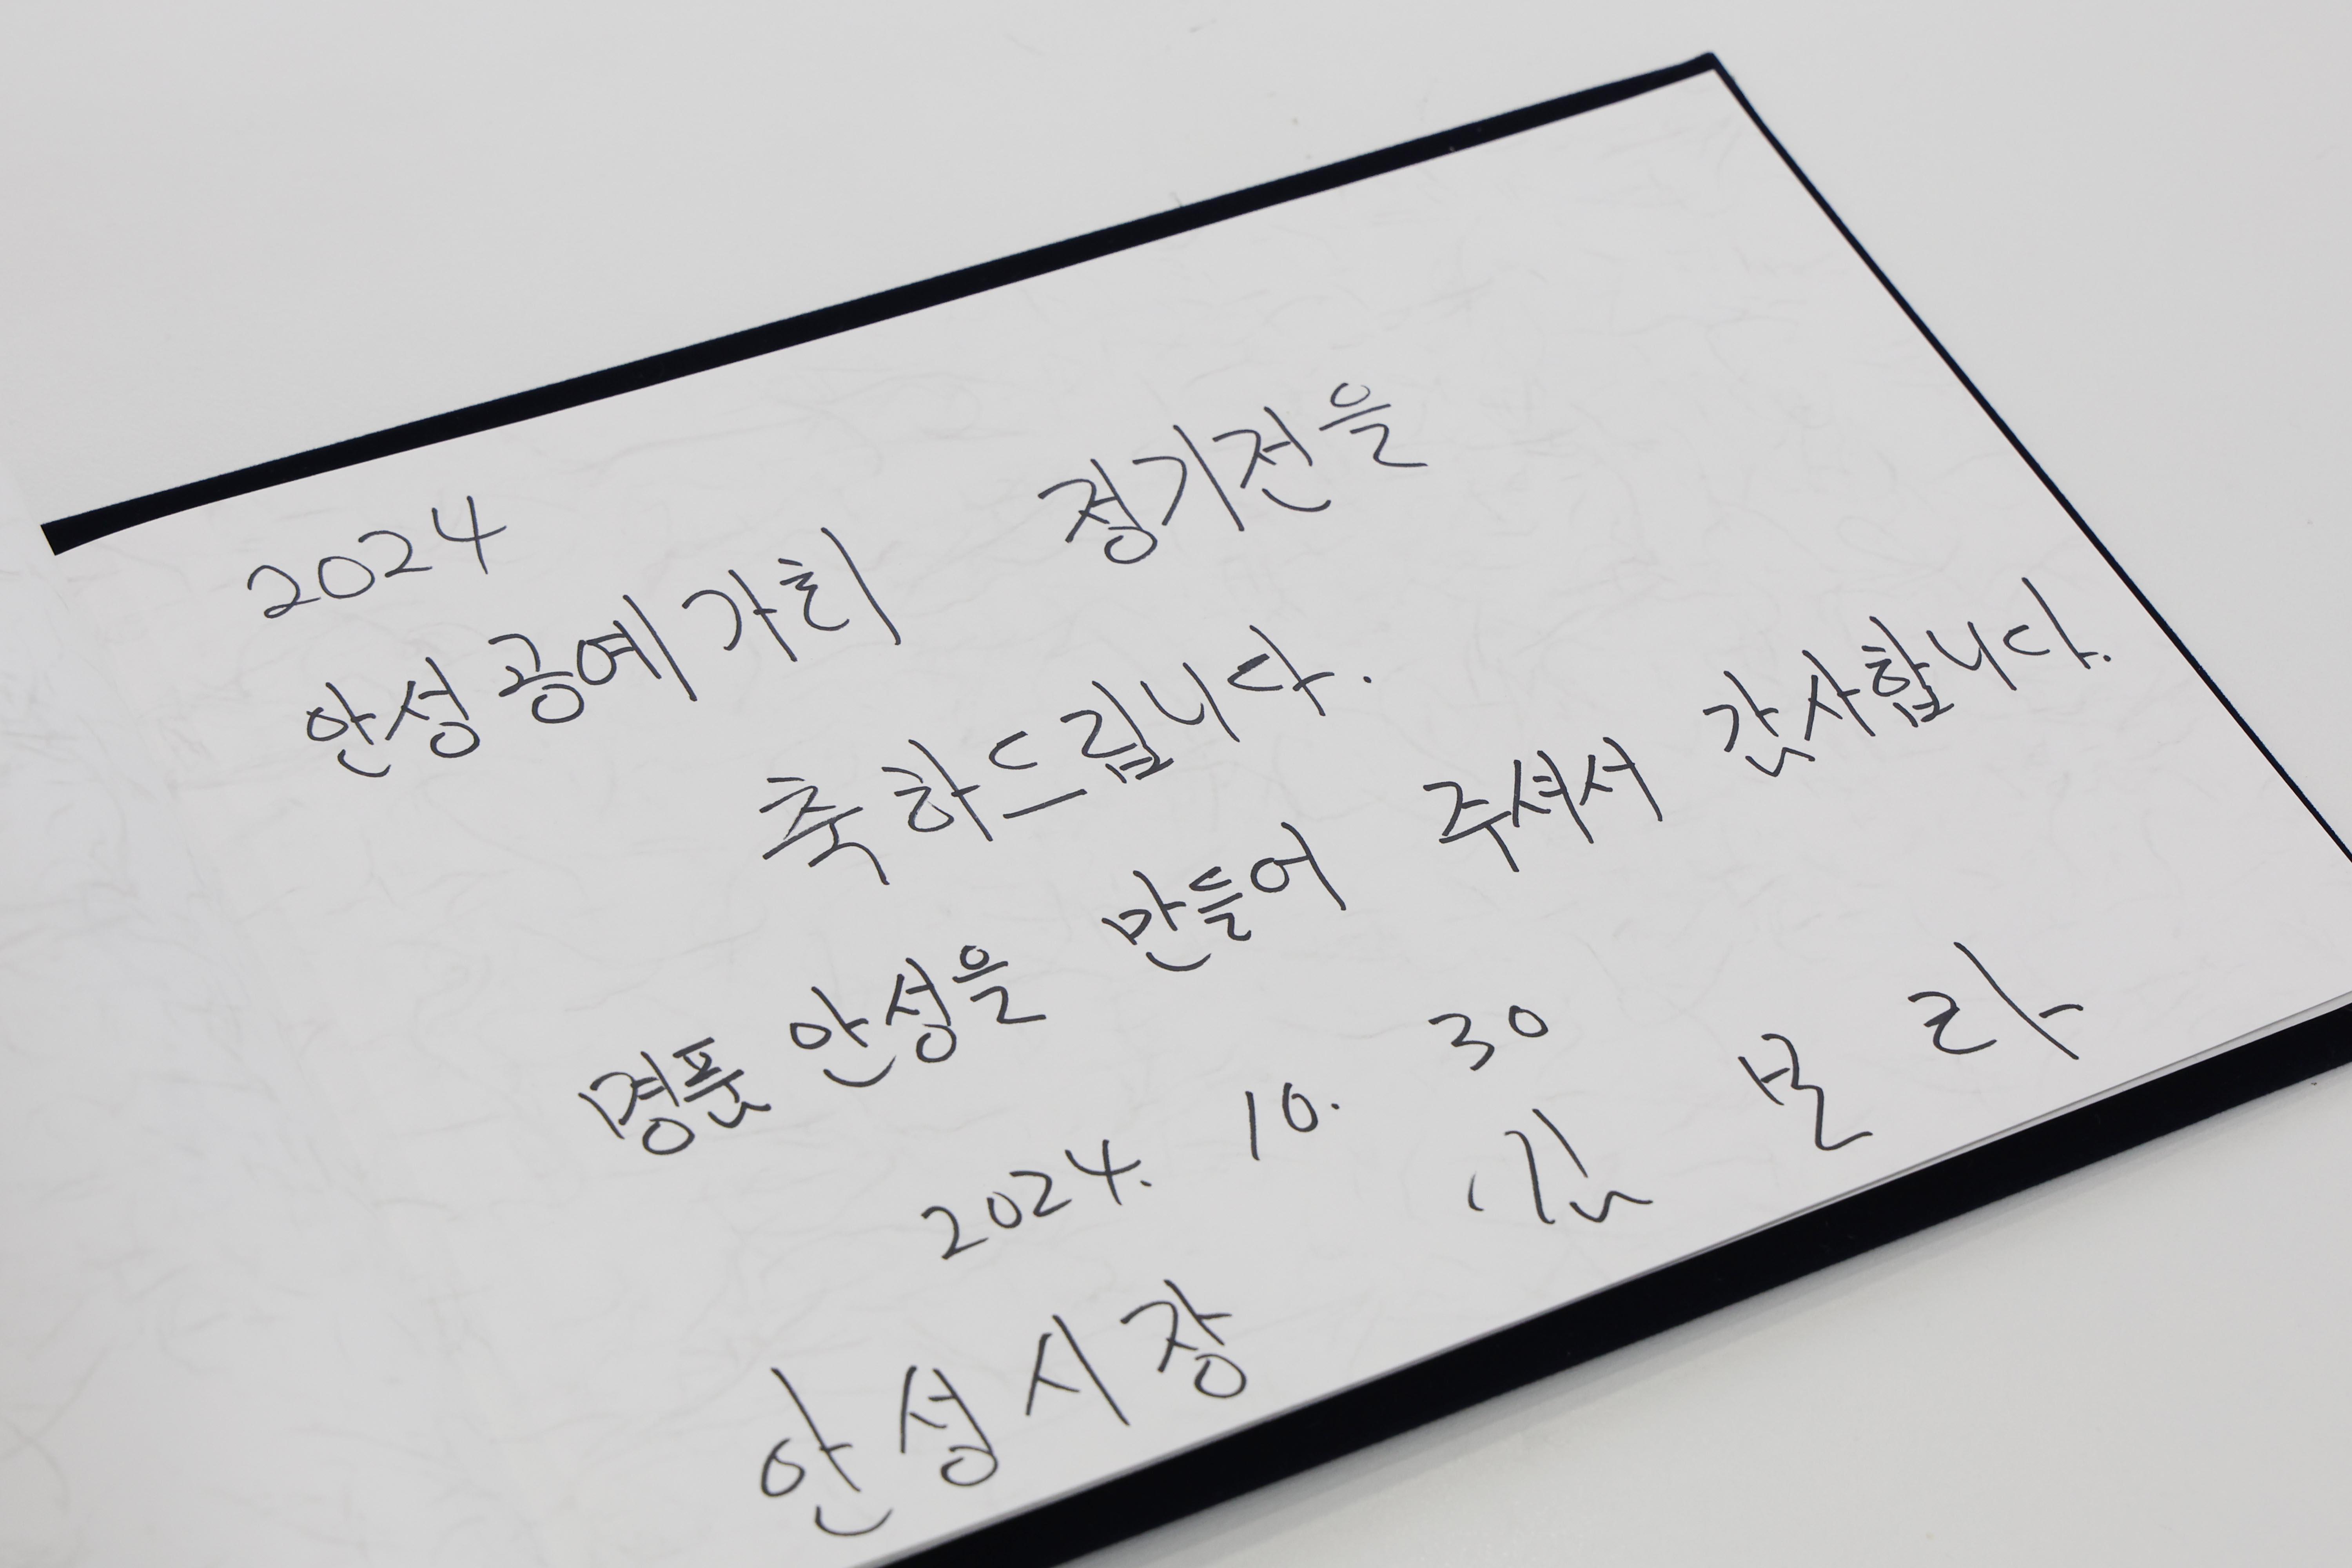 2024
안성 공예 가치 정기전을
축하드립니다.
명품 안성을 만들어 주셔서 감사합니다.
2024. 10. 30
안성시장 김보라